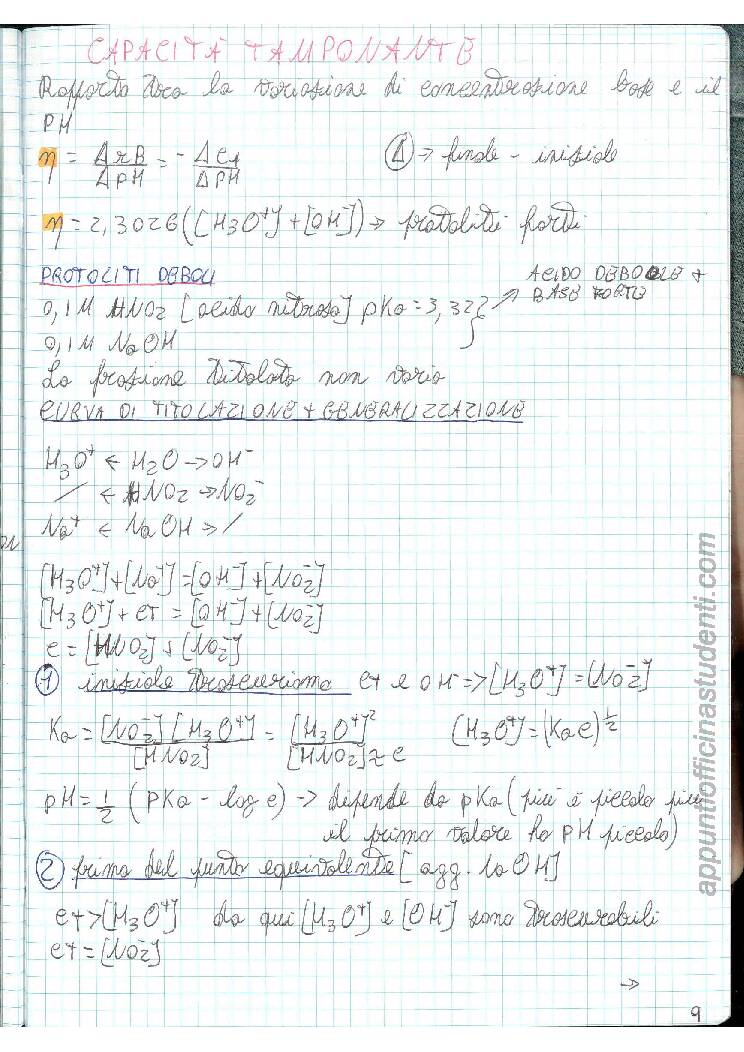 CAPACITÀ TAMPONANTE
Rapporto tra la variazione di concentrazione base e il
PH
η = ΔxB/ΔpH = - ΔC1/ΔPH Δ → finale - iniziale
η = 2,3026([H3O+]+[OH-]) → protoliti forti
PROTOLITI DEBOLI
ACIDO DEBOLE +
BASE FORTE
0,1M HNO2 [acido nitroso] pKa = 3,322
0,1M NaOH
La frazione titolata non varia
CURVA DI TITOLAZIONE + GENERALIZZAZIONE
H3O+ ← H2O → OH-
/ ← HNO2 → NO2-
Na+ ← NaOH → /
[H3O+]+[Na+]=[OH-]+[NO2-]
[H3O+]+cτ = [OH-]+[NO2-]
c = [HNO2]+[NO2-]
1 iniziale trascuriamo cτ e OH- => [H3O+]=[NO2-]
Ka = [NO2-][H3O+]/[HNO2] = [H3O+]2/[HNO2]≈c [H3O+]=(Ka c)1/2
pH = 1/2 (PKa - log c) → dipende da pKa (più è piccolo più
il primo valore ha PH piccolo)
2 prima del punto equivalente [agg. la OH]
cτ>[H3O+] da qui [H3O+] e [OH-] sono trascurabili
cτ=[NO2-]
→
9
appuntiofficinastudenti.com